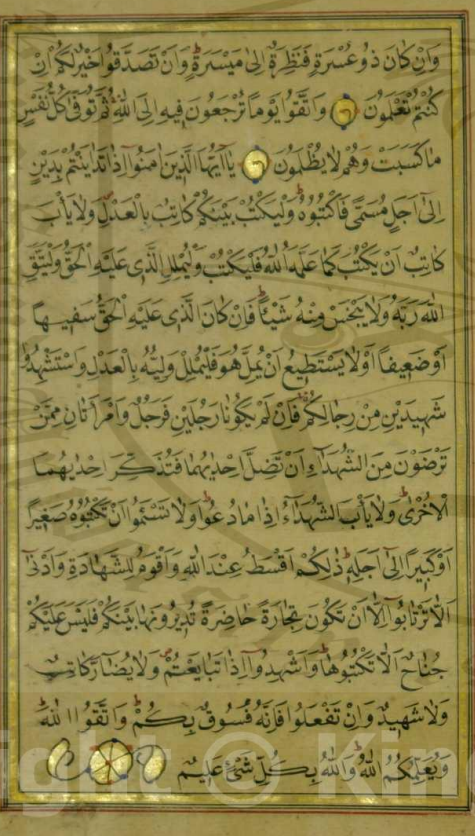 وَاِنْ كَانَ ذُو عُسْرَةٍ فَنَظِرَةٌ اِلٰى مَيْسَرَةٍ وَاَنْ تَصَدَّقُوا خَيْرٌ لَكُمْ اِنْ
كُنْتُمْ تَعْلَمُونَ وَاتَّقُوا يَوْمًا تُرْجَعُونَ فِيهِ اِلَى اللّٰهِ ثُمَّ تُوَفّٰى كُلُّ نَفْسٍ
مَا كَسَبَتْ وَهُمْ لَا يُظْلَمُونَ يَا اَيُّهَا الَّذِينَ اٰمَنُوا اِذَا تَدَايَنْتُمْ بِدَيْنٍ
اِلٰى اَجَلٍ مُسَمًّى فَاكْتُبُوهُ وَلْيَكْتُبْ بَيْنَكُمْ كَاتِبٌ بِالْعَدْلِ وَلَا يَأْبَ
كَاتِبٌ اَنْ يَكْتُبَ كَمَا عَلَّمَهُ اللّٰهُ فَلْيَكْتُبْ وَلْيُمْلِلِ الَّذِى عَلَيْهِ الْحَقُّ وَلْيَتَّقِ
اللّٰهَ رَبَّهُ وَلَا يَبْخَسْ مِنْهُ شَيْئًا فَاِنْ كَانَ الَّذِى عَلَيْهِ الْحَقُّ سَفِيهًا
اَوْ ضَعِيفًا اَوْ لَا يَسْتَطِيعُ اَنْ يُمِلَّ هُوَ فَلْيُمْلِلْ وَلِيُّهُ بِالْعَدْلِ وَاسْتَشْهِدُوا
شَهِيدَيْنِ مِنْ رِجَالِكُمْ فَاِنْ لَمْ يَكُونَا رَجُلَيْنِ فَرَجُلٌ وَامْرَاَتَانِ مِمَّنْ
تَرْضَوْنَ مِنَ الشُّهَدَاءِ اَنْ تَضِلَّ اِحْدٰيهُمَا فَتُذَكِّرَ اِحْدٰيهُمَا
الْاُخْرٰى وَلَا يَأْبَ الشُّهَدَاءُ اِذَا مَا دُعُوا وَلَا تَسْئَمُوا اَنْ تَكْتُبُوهُ صَغِيرًا
اَوْ كَبِيرًا اِلٰى اَجَلِهِ ذٰلِكُمْ اَقْسَطُ عِنْدَ اللّٰهِ وَاَقْوَمُ لِلشَّهَادَةِ وَاَدْنٰى
اَلَّا تَرْتَابُوا اِلَّا اَنْ تَكُونَ تِجَارَةً حَاضِرَةً تُدِيرُونَهَا بَيْنَكُمْ فَلَيْسَ عَلَيْكُمْ
جُنَاحٌ اَلَّا تَكْتُبُوهَا وَاَشْهِدُوا اِذَا تَبَايَعْتُمْ وَلَا يُضَارَّ كَاتِبٌ
وَلَا شَهِيدٌ وَاِنْ تَفْعَلُوا فَاِنَّهُ فُسُوقٌ بِكُمْ وَاتَّقُوا اللّٰهَ
وَيُعَلِّمُكُمُ اللّٰهُ وَاللّٰهُ بِكُلِّ شَىْءٍ عَلِيمٌ